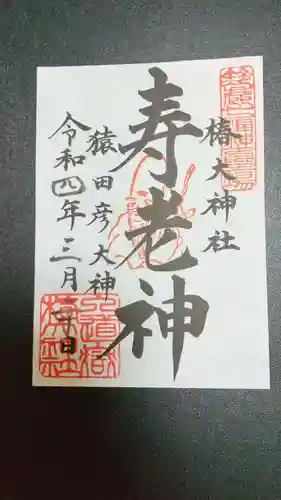 椿大神社
寿老神
猿田彦大神
令和四年三月二十日